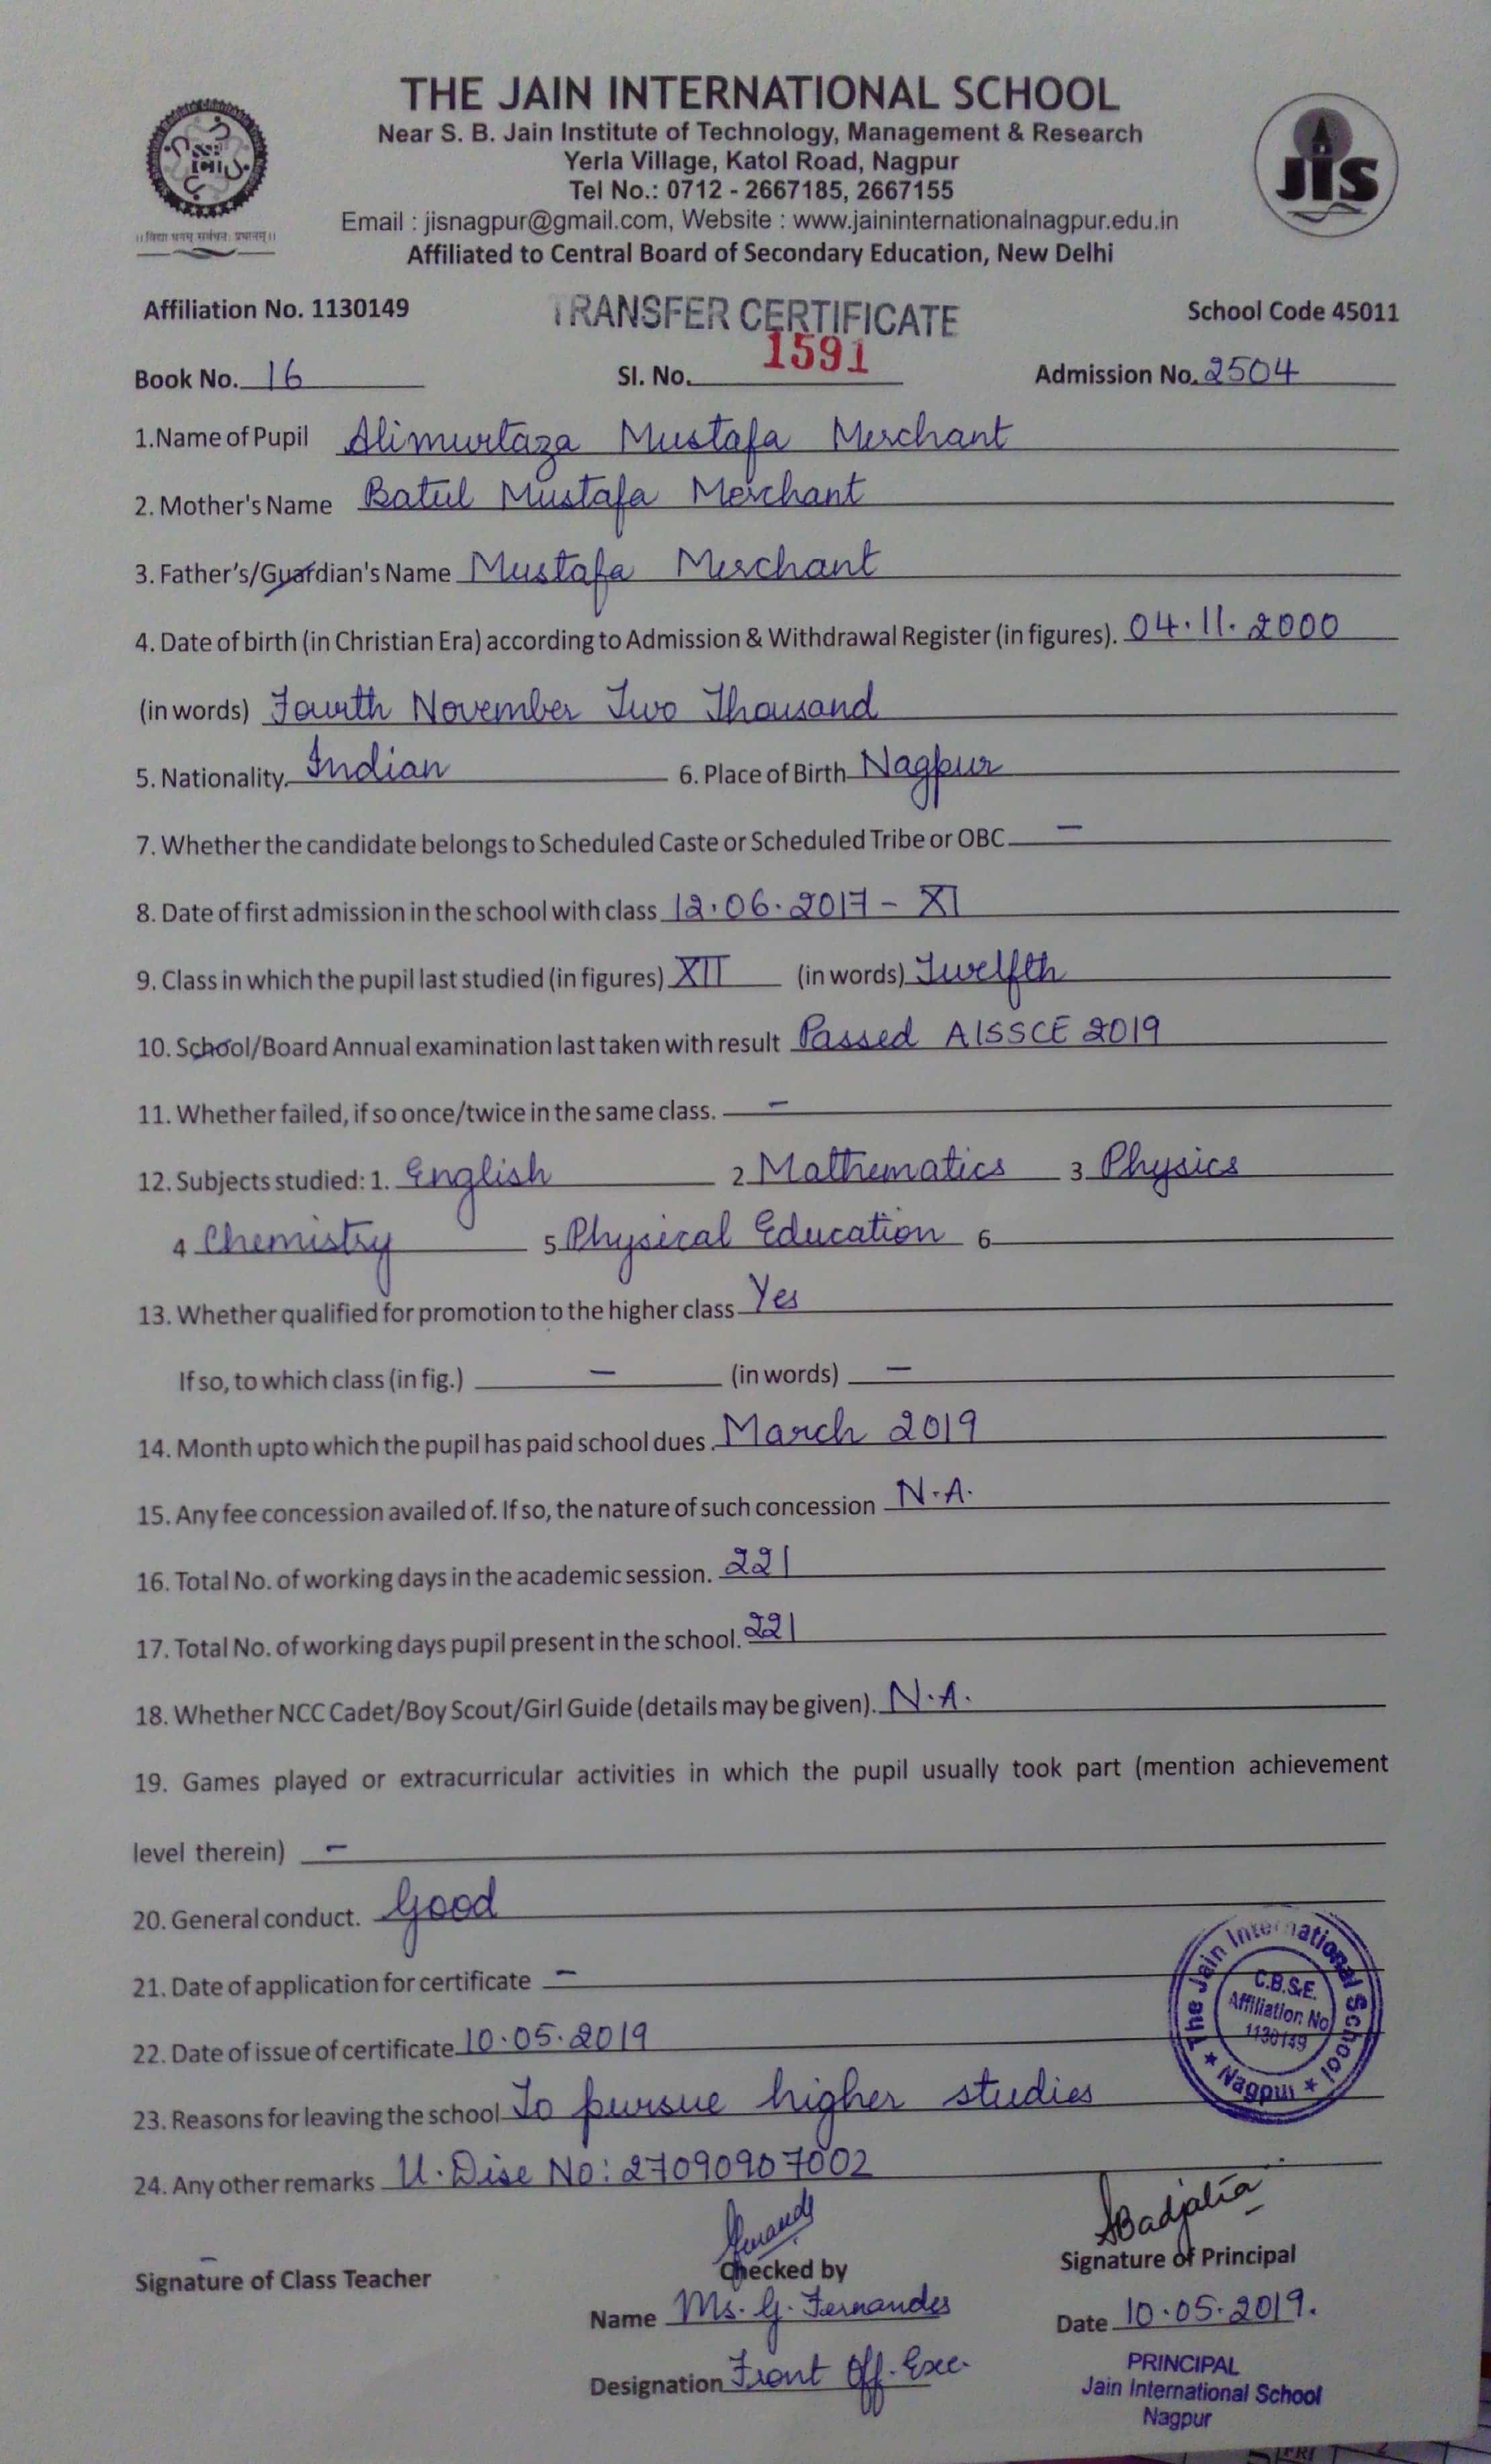 THE JAIN INTERNATIONAL SCHOOL
Near S. B. Jain Institute of Technology, Management & Research
Yerla Village, Katol Road, Nagpur
Tel No.: 0712 - 2667185, 2667155
Email : jisnagpur@gmail.com, Website : www.jaininternationalnagpur.edu.in
Affiliated to Central Board of Secondary Education, New Delhi
JIS
Affiliation No. 1130149 TRANSFER CERTIFICATE School Code 45011
Book No. 16 Sl. No. 1591 Admission No. 2504
1.Name of Pupil Alimurtaza Mustafa Merchant
2. Mother's Name Batul Mustafa Merchant
3. Father's/Guardian's Name Mustafa Merchant
4. Date of birth (in Christian Era) according to Admission & Withdrawal Register (in figures). 04.11.2000
(in words) Fourth November Two Thousand
5. Nationality. Indian 6. Place of Birth Nagpur
7. Whether the candidate belongs to Scheduled Caste or Scheduled Tribe or OBC –
8. Date of first admission in the school with class 12.06.2017 - XI
9. Class in which the pupil last studied (in figures) XII (in words) Twelfth
10. School/Board Annual examination last taken with result Passed AISSCE 2019
11. Whether failed, if so once/twice in the same class. –
12. Subjects studied: 1. English 2 Mathematics 3 Physics
4 Chemistry 5 Physical Education 6
13. Whether qualified for promotion to the higher class Yes
If so, to which class (in fig.) – (in words) –
14. Month upto which the pupil has paid school dues. March 2019
15. Any fee concession availed of. If so, the nature of such concession N.A.
16. Total No. of working days in the academic session. 221
17. Total No. of working days pupil present in the school. 221
18. Whether NCC Cadet/Boy Scout/Girl Guide (details may be given). N.A.
19. Games played or extracurricular activities in which the pupil usually took part (mention achievement
level therein) –
20. General conduct. Good
21. Date of application for certificate –
22. Date of issue of certificate 10.05.2019
23. Reasons for leaving the school To pursue higher studies
24. Any other remarks U.Dise No: 27090907002
The Jain International School
★ Nagpur ★
C.B.S.E.
Affiliation No
1130149
Badjatia
Signature of Class Teacher Checked by Signature of Principal
Name Ms. G. Fernandes Date 10.05.2019.
Designation Front Off. Exec.
PRINCIPAL
Jain International School
Nagpur